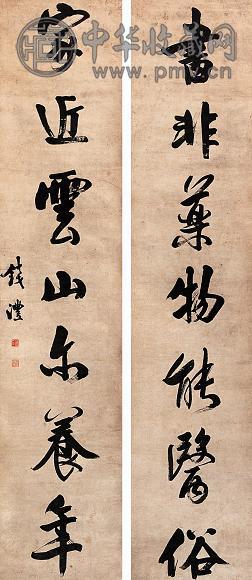 中华收藏网
書非藥物能醫俗
家近雲山亦養年
錢灃